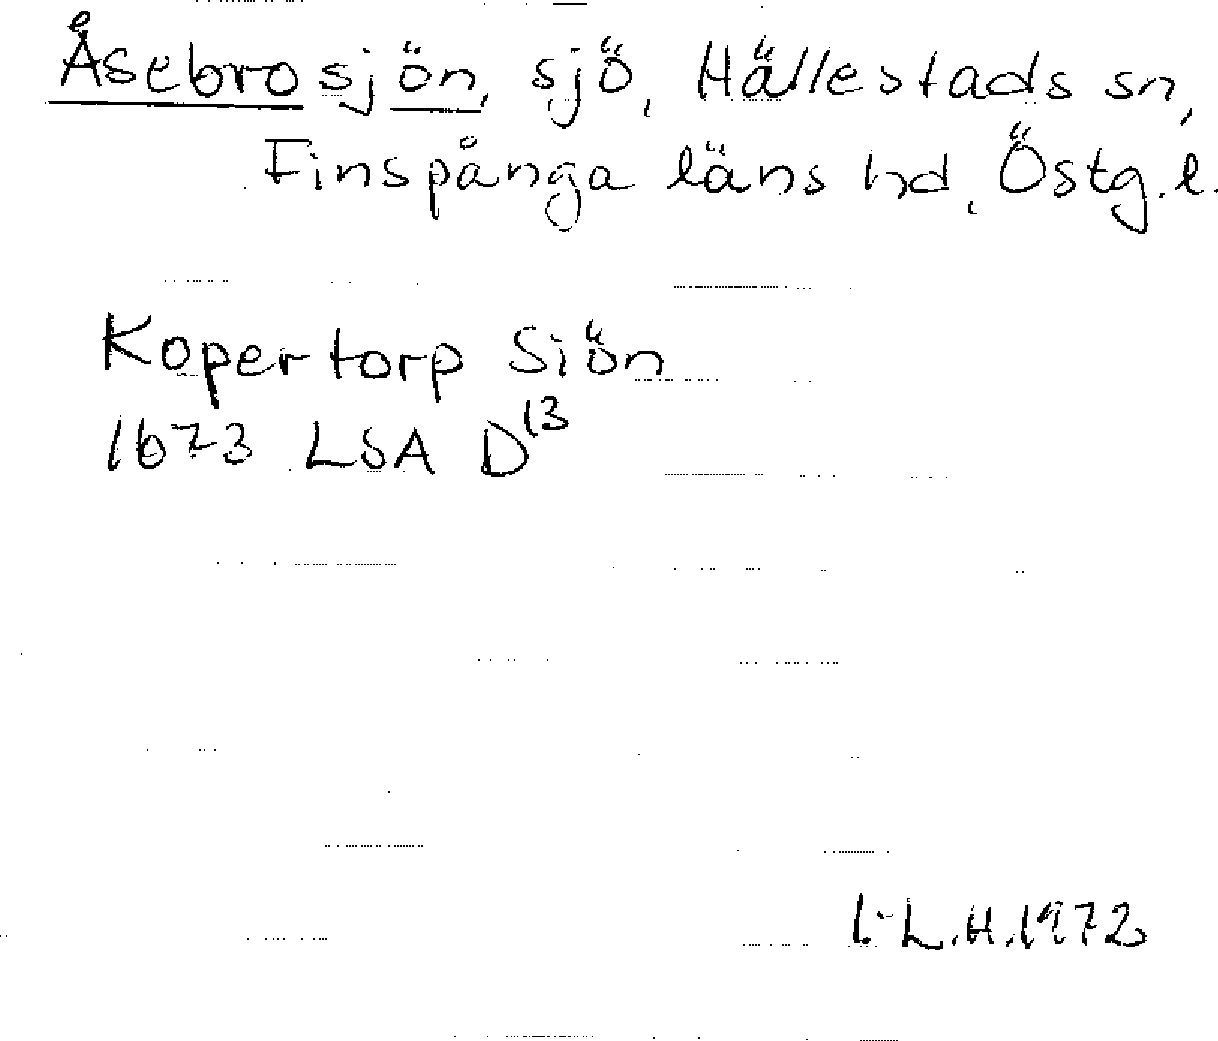 Åsebrosjön, sjö, Hällestads sn,
Finspånga läns hd, Östg. l.
Kopertorp Siön
1673 LSA D13
I-L.H.1972